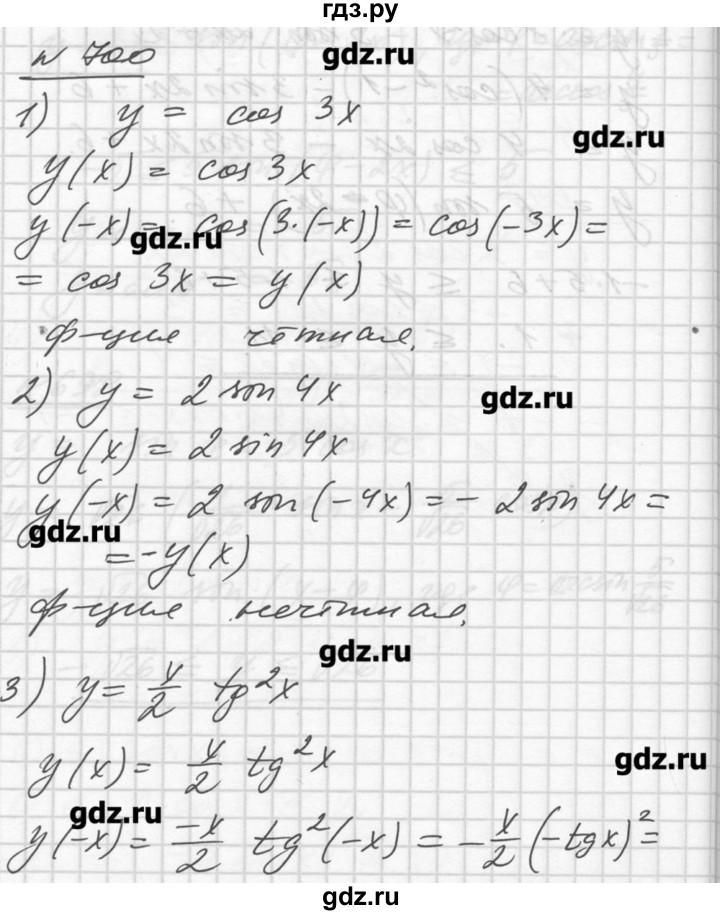 гдз.ру
n 700
gdz.ru
1) y = cos 3x
gdz.ru
y(x) = cos 3x
y(-x) = cos(3·(-x)) = cos(-3x) =
gdz.ru
= cos 3x = y(x)
ф-ция чётная.
2) y = 2 sin 4x
gdz.ru
y(x) = 2 sin 4x
y(-x) = 2 sin(-4x) = - 2 sin 4x =
gdz.ru
= -y(x)
ф-ция нечётная.
gdz.ru
3) y = x/2 tg²x
y(x) = x/2 tg²x
gdz.ru
gdz.ru
y(-x) = -x/2 tg²(-x) = -x/2 (-tgx)² =
gdz.ru